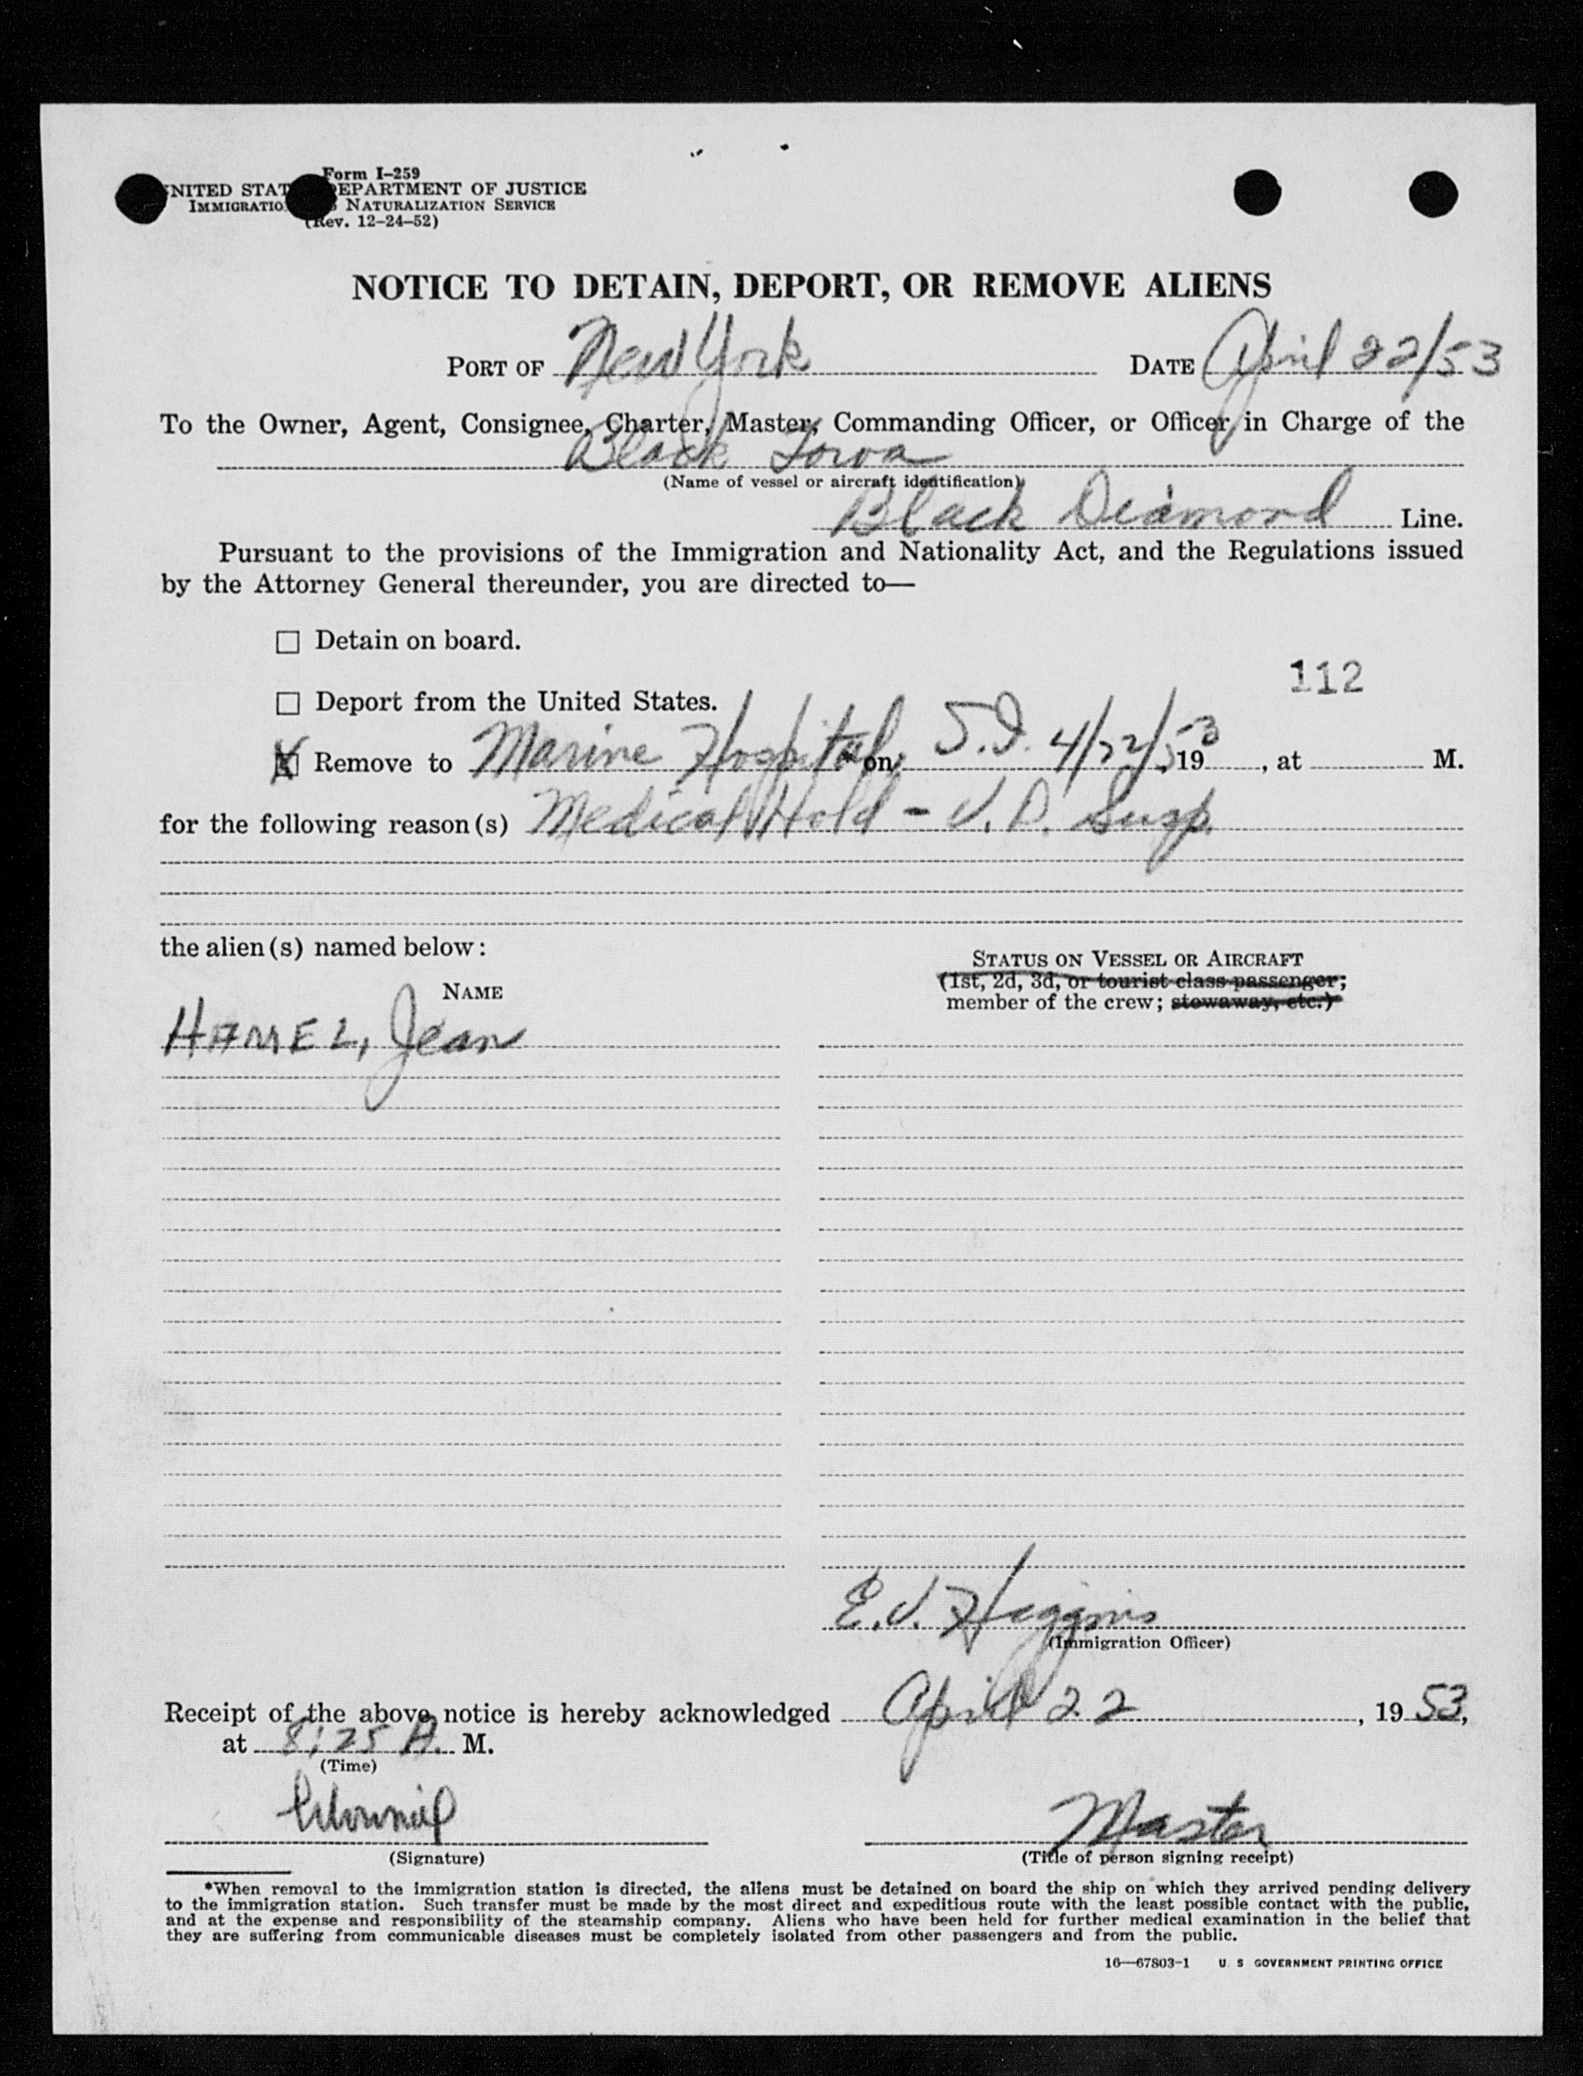 Form I-259
UNITED STATES DEPARTMENT OF JUSTICE
IMMIGRATION AND NATURALIZATION SERVICE
(Rev. 12-24-52)
NOTICE TO DETAIN, DEPORT, OR REMOVE ALIENS
PORT OF New York DATE April 22/53
To the Owner, Agent, Consignee, Charter, Master, Commanding Officer, or Officer in Charge of the
Black Iowa
(Name of vessel or aircraft identification)
Black Diamond Line.
Pursuant to the provisions of the Immigration and Nationality Act, and the Regulations issued
by the Attorney General thereunder, you are directed to—
☐ Detain on board.
112
☐ Deport from the United States.
☒ Remove to Marine Hospital, * on S.I. 4/22/53, 19, at M.
for the following reason(s) Medical Hold - V.D. Susp.
the alien(s) named below:
STATUS ON VESSEL OR AIRCRAFT
(1st, 2d, 3d, or tourist class passenger;
NAME
member of the crew; stowaway, etc.)
HAMEL, Jean
E.V. Higgins
(Immigration Officer)
Receipt of the above notice is hereby acknowledged April 22, 19 53,
at 8:25 A. M.
(Time)
Master
(Signature) (Title of person signing receipt)
*When removal to the immigration station is directed, the aliens must be detained on board the ship on which they arrived pending delivery
to the immigration station. Such transfer must be made by the most direct and expeditious route with the least possible contact with the public,
and at the expense and responsibility of the steamship company. Aliens who have been held for further medical examination in the belief that
they are suffering from communicable diseases must be completely isolated from other passengers and from the public.
16—67803-1 U. S. GOVERNMENT PRINTING OFFICE